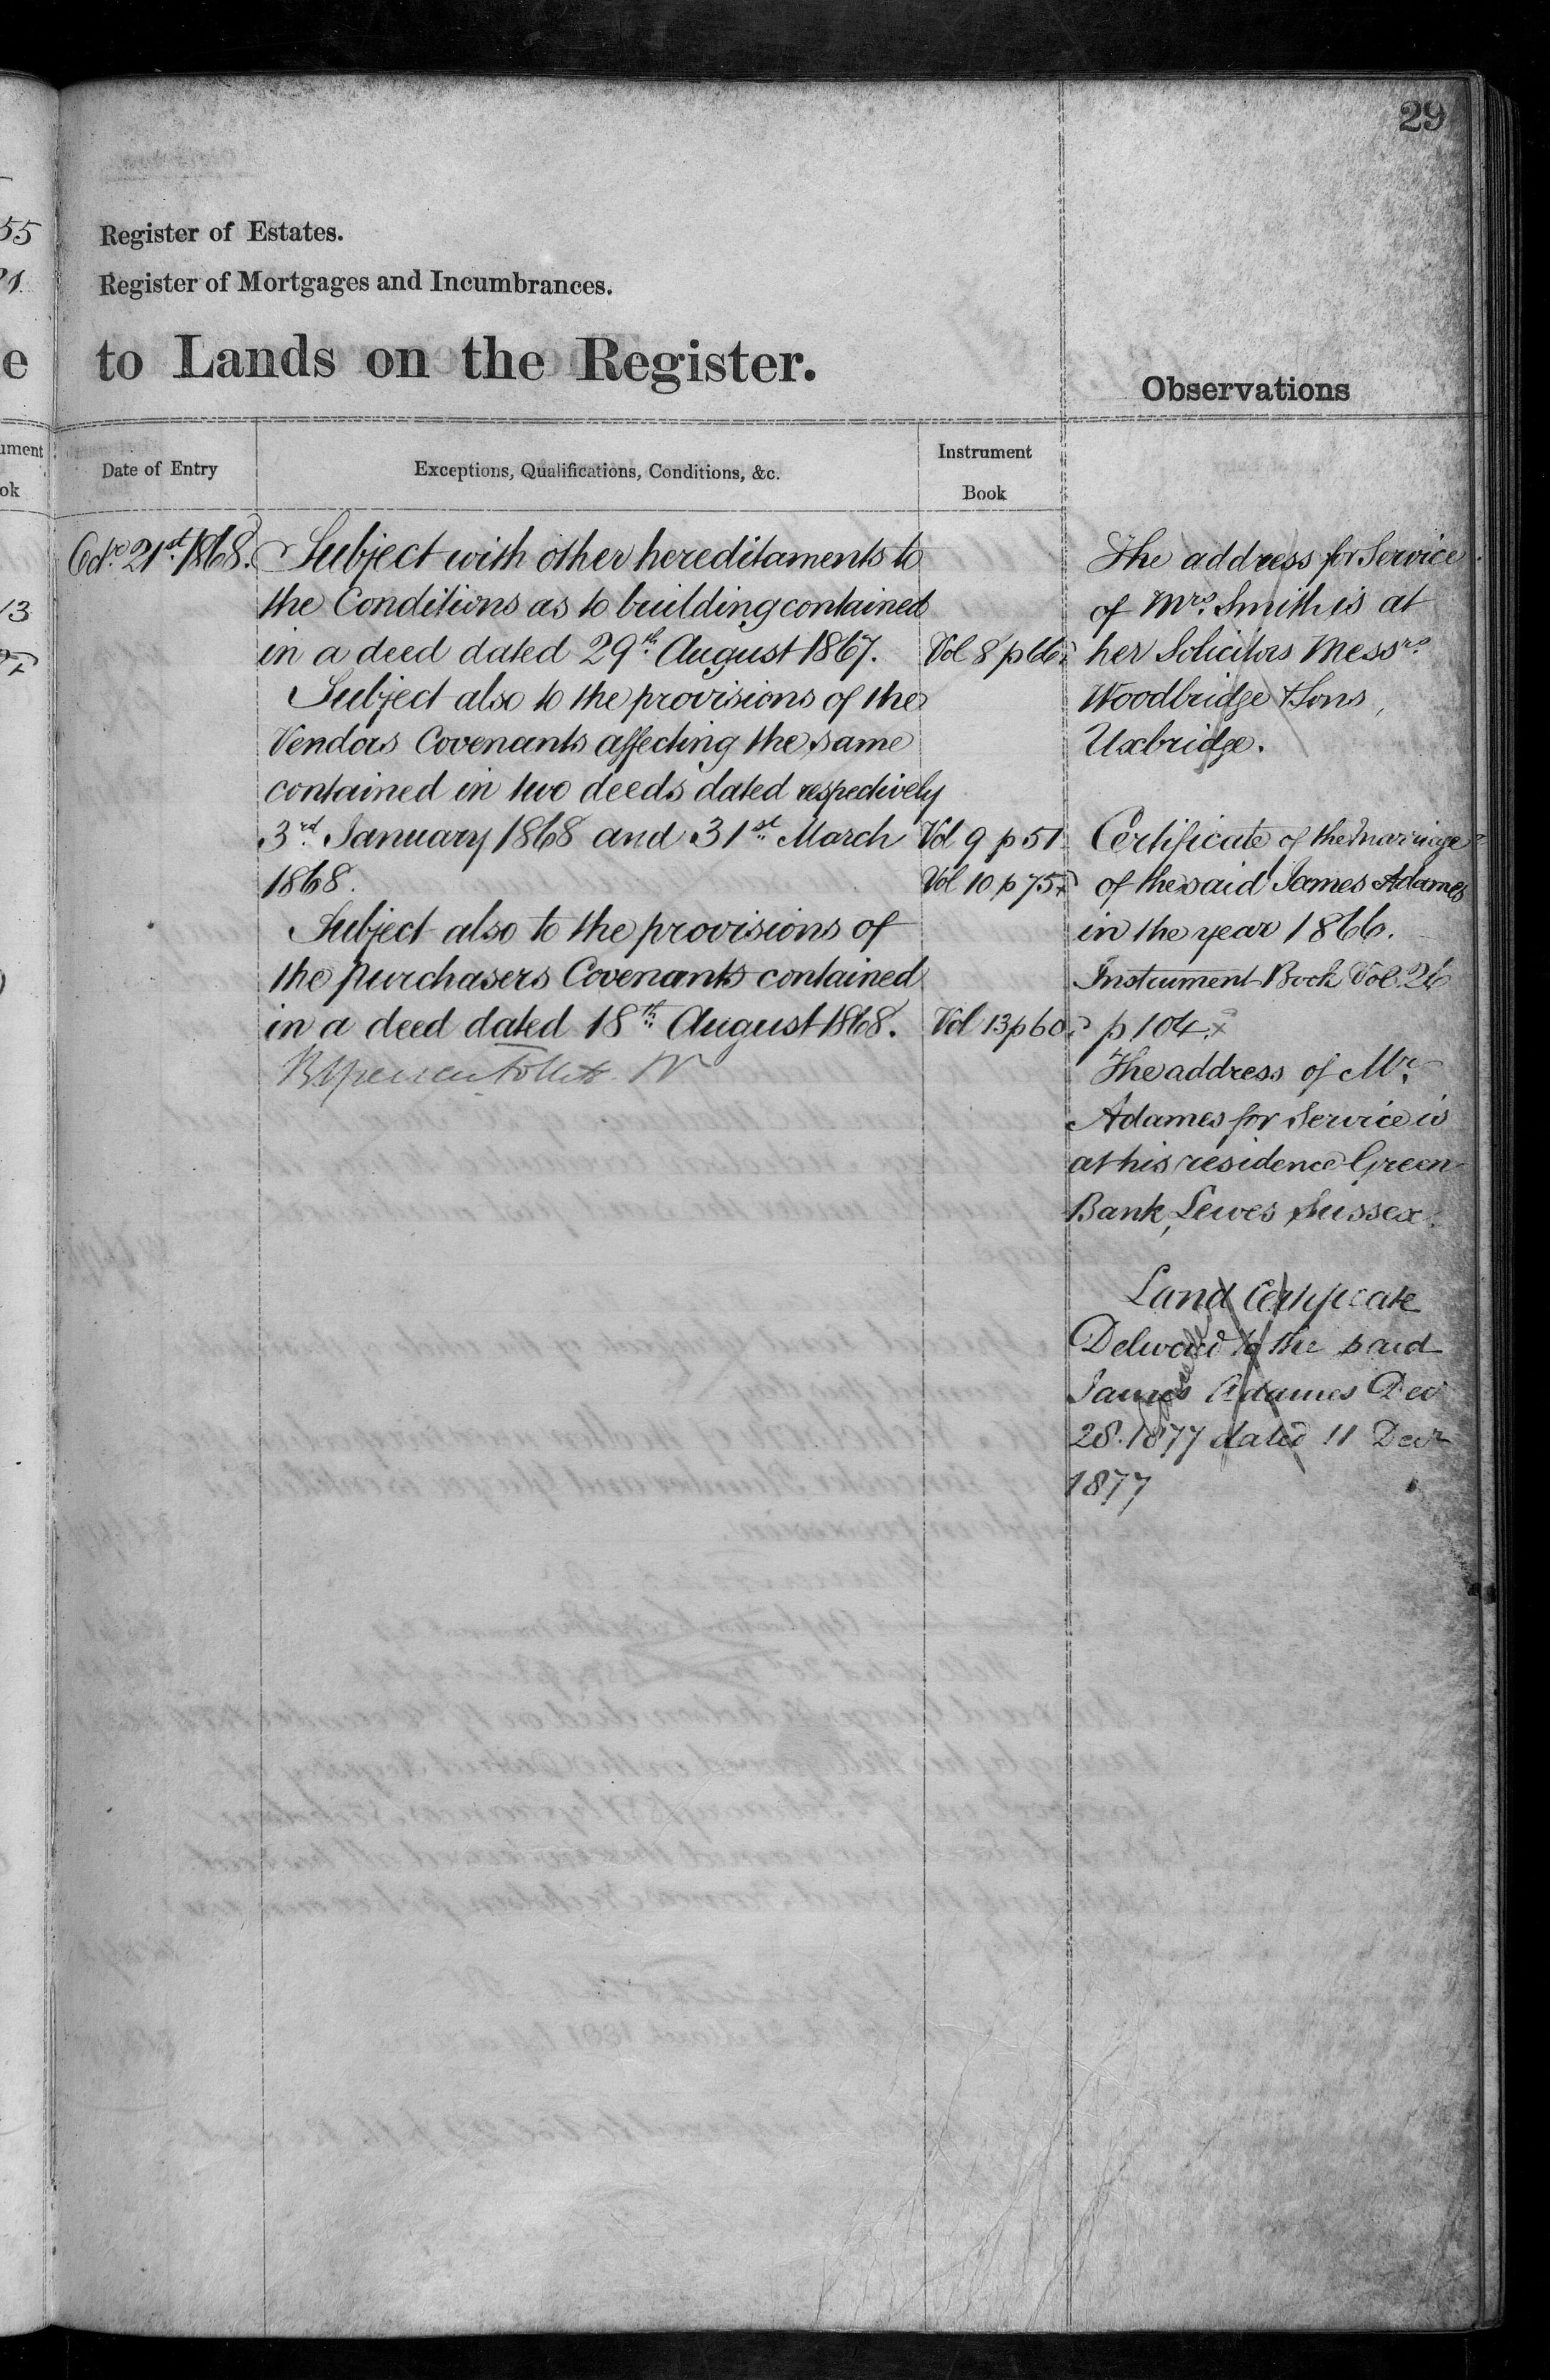 29
Register of Estates.
Register of Mortgages and Incumbrances.
to Lands on the Register.
Observations
Date of Entry
Exceptions, Qualifications, Conditions, &c.
Instrument
Book
Octr. 21st. 1868.
Subject with other hereditaments to
the Conditions as to building contained
in a deed dated 29th. August 1867.
Vol 8 p 66
Subject also to the provisions of the
Vendors Covenants affecting the same
contained in two deeds dated respectively
3rd. January 1868 and 31st. March
Vol 9 p 51
1868.
Vol 10 p 75
Subject also to the provisions of
the purchasers Covenants contained
in a deed dated 18th. August 1868.
Vol 13 p 60
The address for Service
of Mrs. Smith is at
her Solicitors Messrs.
Woodbridge & Sons,
Uxbridge.
Certificate of the marriage
of the said James Adames
in the year 1866.
Instrument Book Vol. 26
p 104
The address of Mr.
Adames for Service is
at his residence Green
Bank, Lewes Sussex.
Land Certificate
Delivered to the said
James Adames Decr
28. 1877 dated 11 Decr
1877
55
21
e
ument
ok
13